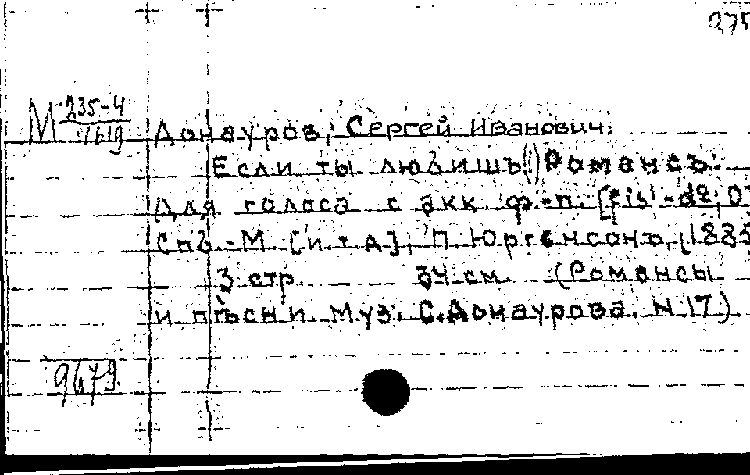 275
М 235-4
1619
Донауров, Сергей Иванович.
Если ты любишь(!) Романсъ.
Для голоса с акк ф.-п. [fis¹-d²;
Спб.-М [и т д], П. Юргенсонъ, (1885
3 стр 34 см (Романсы
и пѣсни муз. С. Донаурова. N 17)
9679